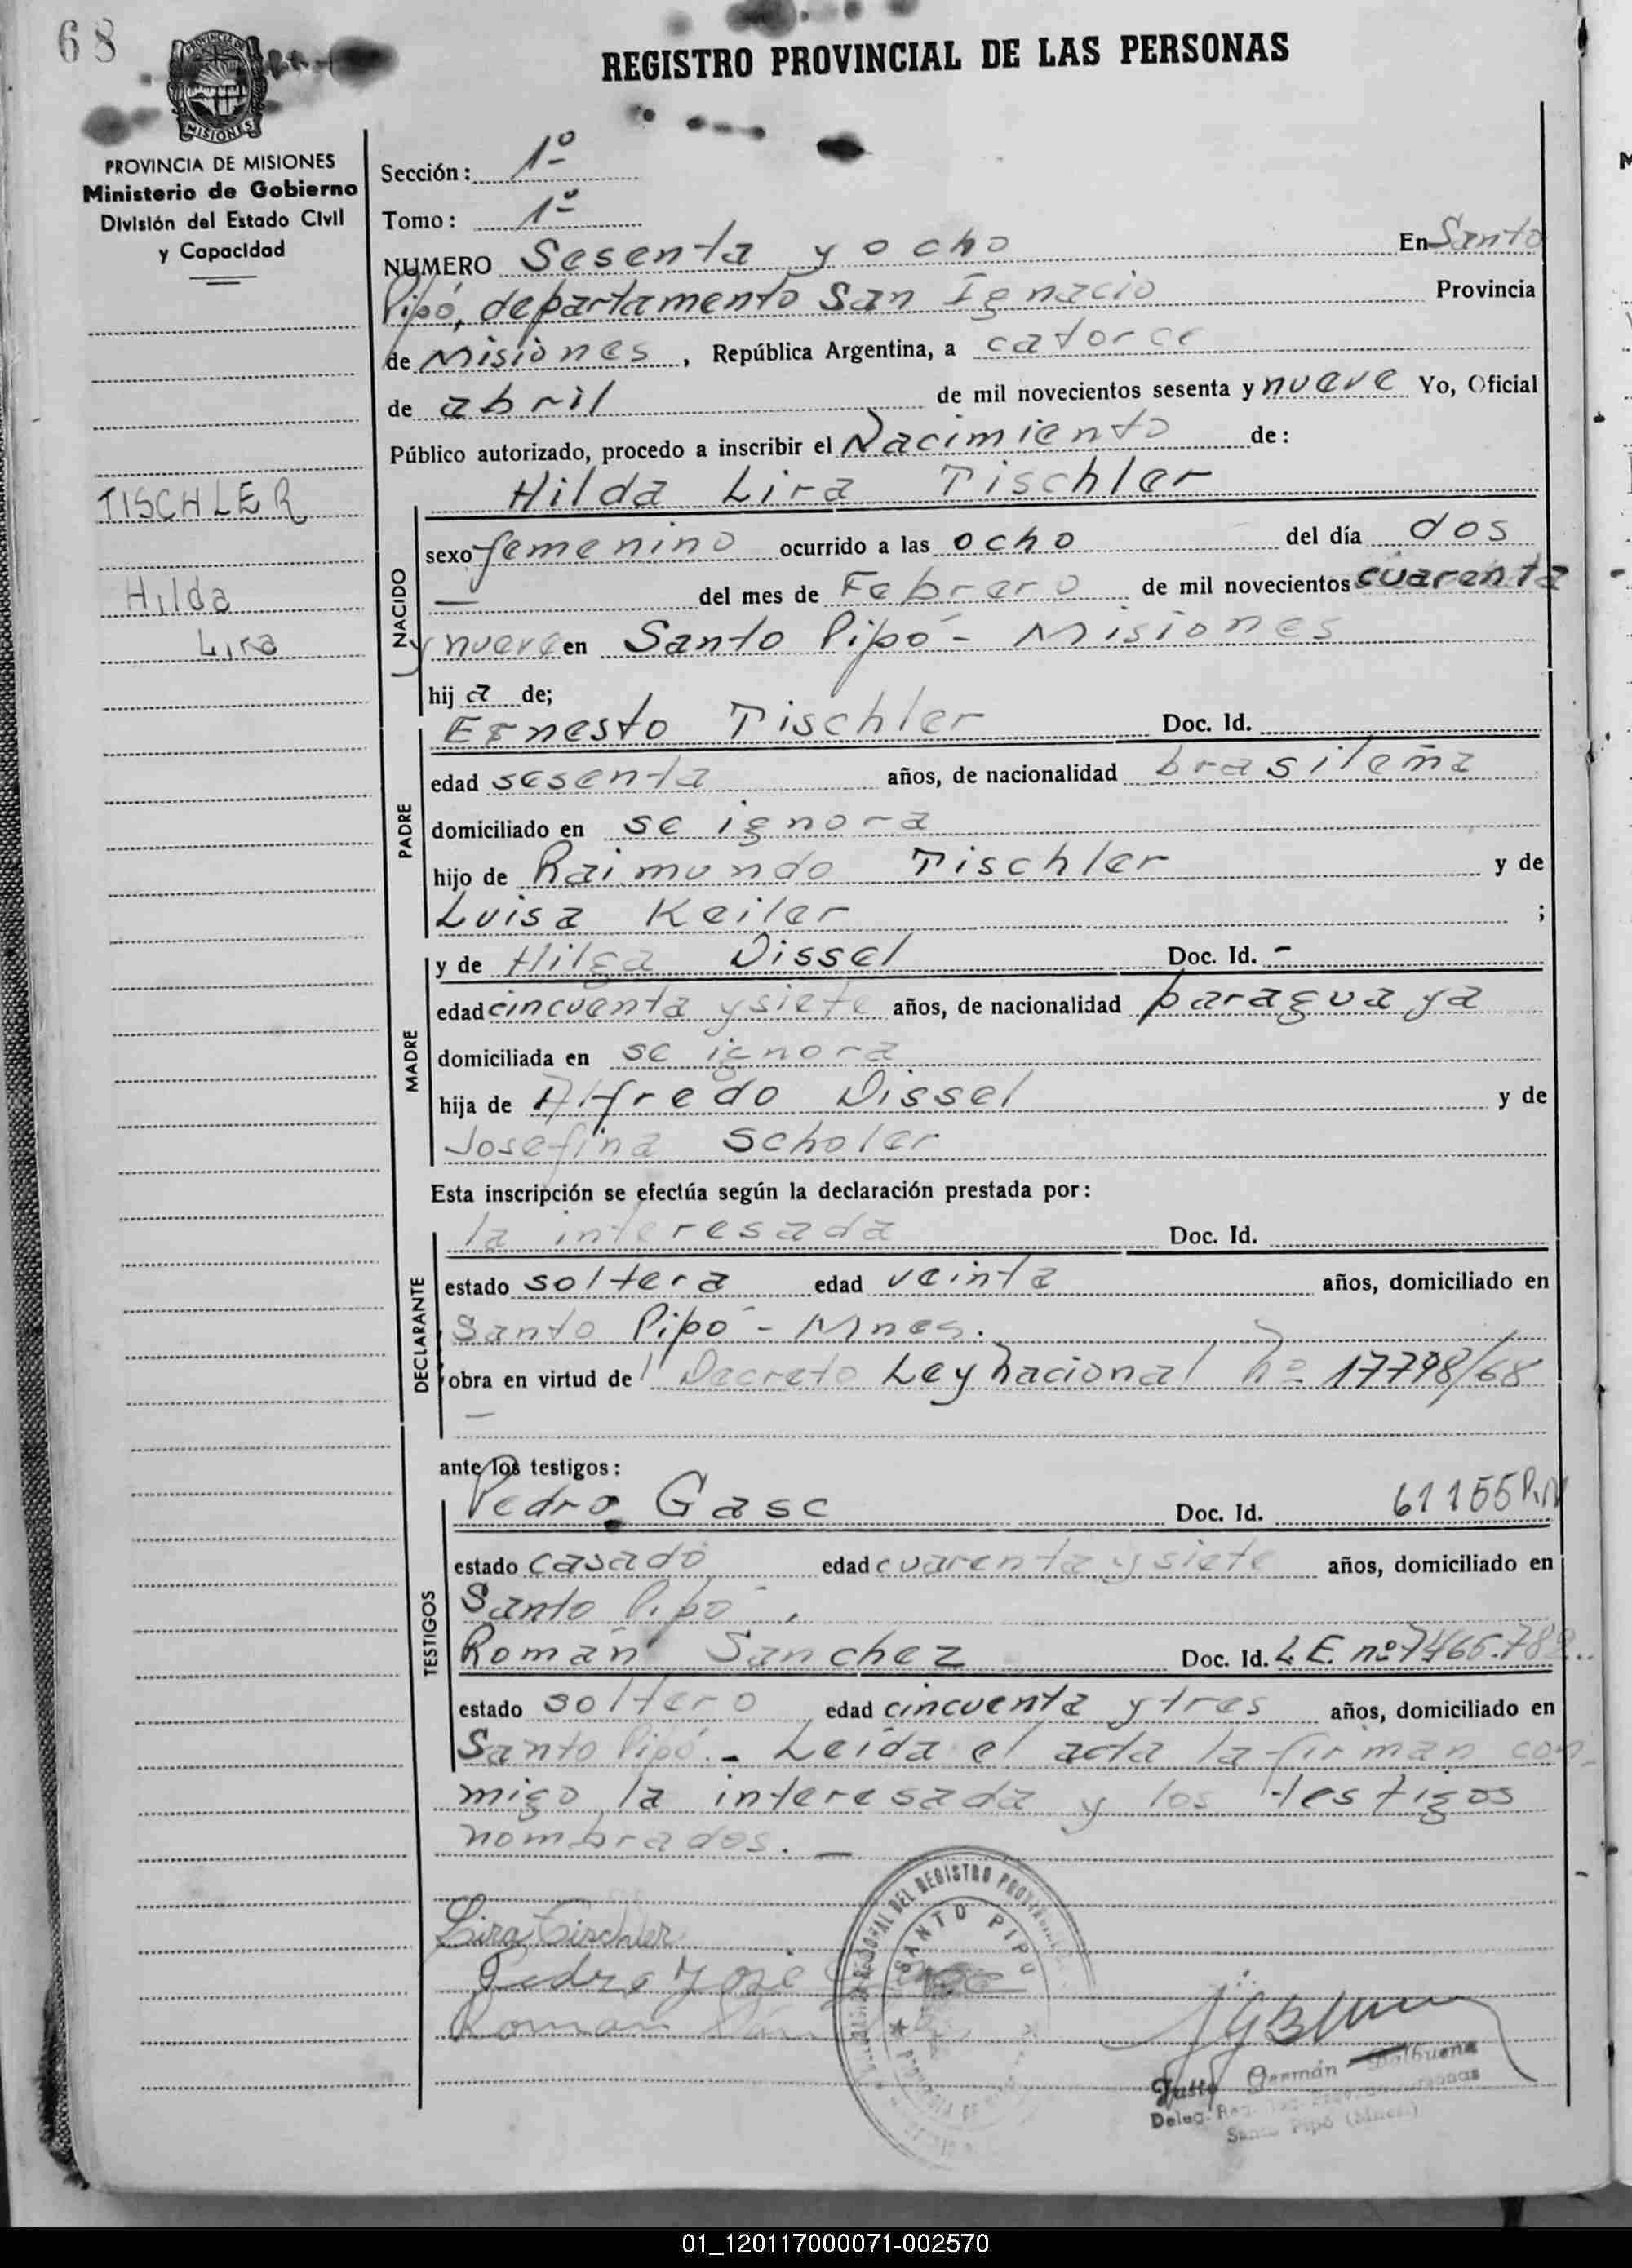 68
REGISTRO PROVINCIAL DE LAS PERSONAS
MISIONES
PROVINCIA DE MISIONES
Ministerio de Gobierno
División del Estado Civil
y Capacidad
TISCHLER
Hilda
Lira
Sección: 1º
Tomo: 1º
NUMERO Sesenta y ocho En Santo
Pipó, departamento San Ignacio Provincia
de Misiones, República Argentina, a catorce
de abril de mil novecientos sesenta y nueve Yo, Oficial
Público autorizado, procedo a inscribir el Nacimiento de:
Hilda Lira Tischler
NACIDO
sexo femenino ocurrido a las ocho del día dos
— del mes de Febrero de mil novecientos cuarenta
y nueve en Santo Pipó - Misiones
hija de;
PADRE
Ernesto Tischler Doc. Id.
edad sesenta años, de nacionalidad brasileña
domiciliado en se ignora
hijo de Raimundo Tischler y de
Luisa Keiler ;
MADRE
y de Hilga Dissel Doc. Id. -
edad cincuenta y siete años, de nacionalidad paraguaya
domiciliada en se ignora
hija de Alfredo Dissel y de
Josefina Scholer
Esta inscripción se efectúa según la declaración prestada por:
DECLARANTE
la interesada Doc. Id.
estado soltera edad veinte años, domiciliado en
Santo Pipó - Mnes.
obra en virtud de l Decreto Ley nacional nº 17798/68
—
ante los testigos:
TESTIGOS
Pedro Gasc Doc. Id. 61155
estado casado edad cuarenta y siete años, domiciliado en
Santo Pipó.
Román Sanchez Doc. Id. L E. nº
estado soltero edad cincuenta y tres años, domiciliado en
Santo Pipó. - Leída el acta la firman con
migo, la interesada y los testigos
nombrados. —
Lira Tischler
Pedro José
Roman
DEL REGISTRO
SANTO PIPO
Julio Germán Balbuena
Deleg. Reg.
Santo Pipó (Mnes.)
01_120117000071-002570